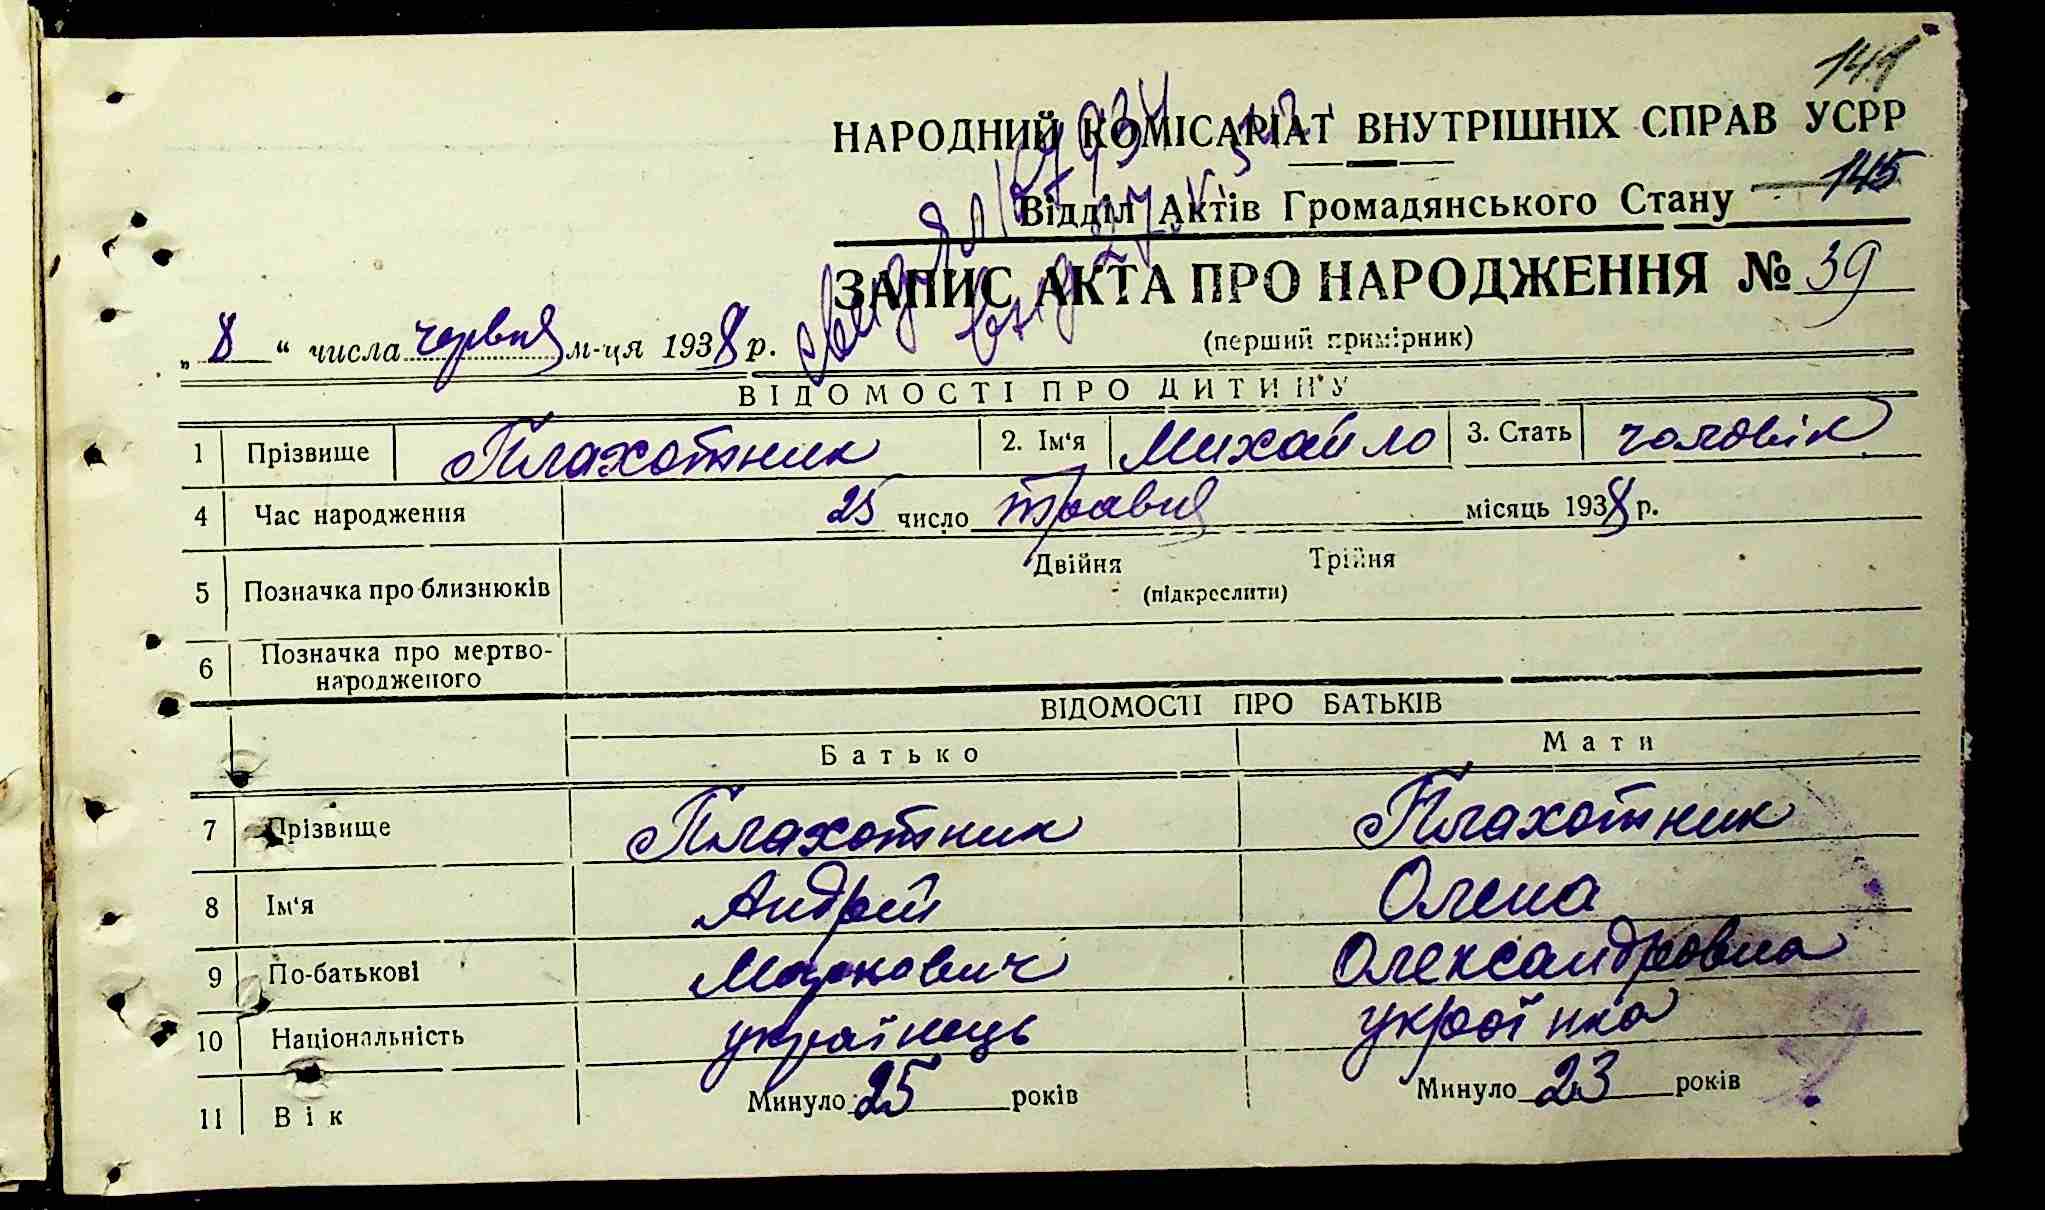 141
НАРОДНИЙ КОМІСАРІАТ ВНУТРІШНІХ СПРАВ УСРР
Відділ Актів Громадянського Стану 145
ЗАПИС АКТА ПРО НАРОДЖЕННЯ № 39
„ 8 “ числа червня м-ця 1938 р.
(перший примірник)
ВІДОМОСТІ ПРО ДИТИНУ
1 Прізвище Плахотник 2. Ім‘я Михайло 3. Стать чоловік
4 Час народження 25 число травня місяць 1938 р.
5 Позначка про близнюків Двійня Трійня
(підкреслити)
6 Позначка про мертво-
народженого
ВІДОМОСТІ ПРО БАТЬКІВ
Батько Мати
7 Прізвище Плахотник Плахотник
8 Ім‘я Андрій Олена
9 По-батькові Маркович Олександровна
10 Національність українець українка
11 Вік Минуло 25 років Минуло 23 років